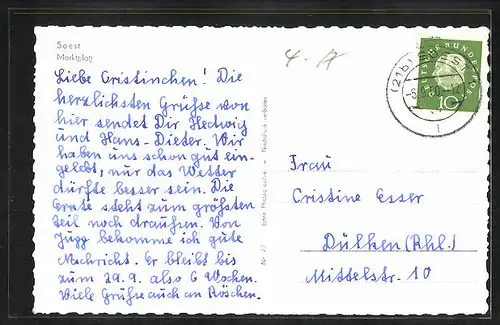 Soest
Marktplatz
4.-
Liebe Cristinchen! Die
herzlichsten Grüße von
hier sendet Dir Hedwig
und Hans-Dieter. Wir
haben uns schon gut ein-
gelebt, nur das Wetter
dürfte besser sein. Die
Ernte steht zum größten
teil noch draußen. Von
Jupp bekomme ich gute
Nachricht. Er bleibt bis
zum 29.9. also 6 Wochen.
Viele Grüße auch an Röschen.
Echte Photographie - Nachdruck verboten
(21b)
DEUTSCHE BUNDESPOST
10
Frau
Cristine Esser
Dülken (Rhl.)
Mittelstr. 10